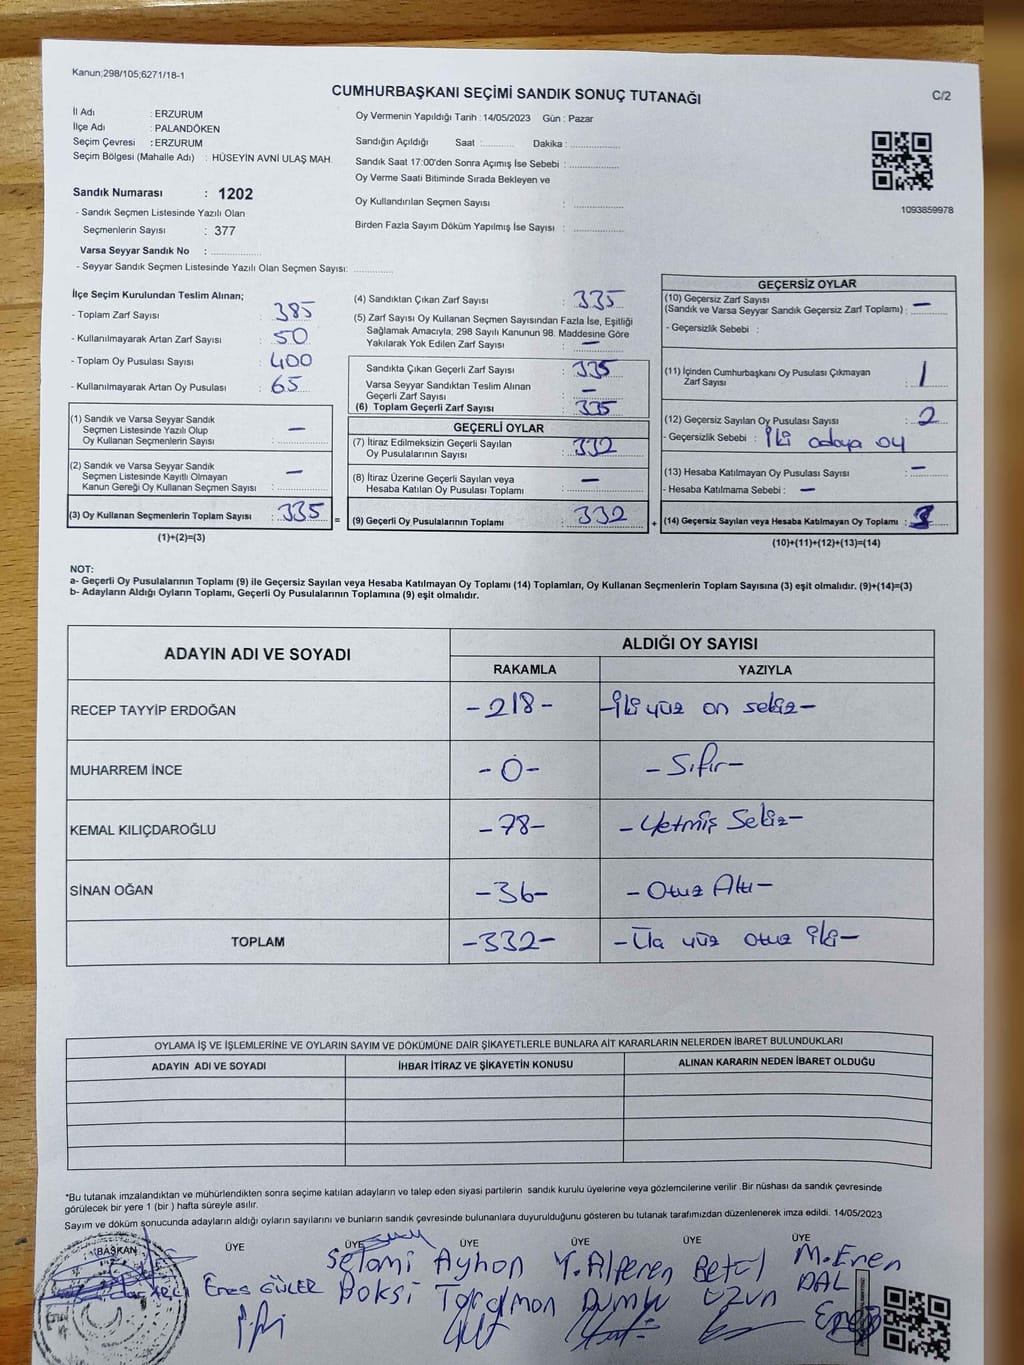 Kanun;298/105;6271/18-1
CUMHURBAŞKANI SEÇİMİ SANDIK SONUÇ TUTANAĞI
C/2
İl Adı : ERZURUM
İlçe Adı : PALANDÖKEN
Seçim Çevresi : ERZURUM
Seçim Bölgesi (Mahalle Adı) : HÜSEYİN AVNİ ULAŞ MAH.
Sandık Numarası : 1202
- Sandık Seçmen Listesinde Yazılı Olan
Seçmenlerin Sayısı : 377
Varsa Seyyar Sandık No : ..............
- Seyyar Sandık Seçmen Listesinde Yazılı Olan Seçmen Sayısı: ............
Oy Vermenin Yapıldığı Tarih : 14/05/2023 Gün : Pazar
Sandığın Açıldığı Saat :........... Dakika : ..............
Sandık Saat 17:00'den Sonra Açımış İse Sebebi : ..............
Oy Verme Saati Bitiminde Sırada Bekleyen ve
Oy Kullandırılan Seçmen Sayısı : ..............
Birden Fazla Sayım Döküm Yapılmış İse Sayısı : ..............
1093859978
İlçe Seçim Kurulundan Teslim Alınan;
- Toplam Zarf Sayısı : 385
- Kullanılmayarak Artan Zarf Sayısı : 50
- Toplam Oy Pusulası Sayısı : 400
- Kullanılmayarak Artan Oy Pusulası : 65
(1) Sandık ve Varsa Seyyar Sandık
Seçmen Listesinde Yazılı Olup
Oy Kullanan Seçmenlerin Sayısı : —
(2) Sandık ve Varsa Seyyar Sandık
Seçmen Listesinde Kayıtlı Olmayan
Kanun Gereği Oy Kullanan Seçmen Sayısı : —
(3) Oy Kullanan Seçmenlerin Toplam Sayısı : 335 =
(1)+(2)=(3)
(4) Sandıktan Çıkan Zarf Sayısı : 335
(5) Zarf Sayısı Oy Kullanan Seçmen Sayısından Fazla İse, Eşitliği
Sağlamak Amacıyla; 298 Sayılı Kanunun 98. Maddesine Göre
Yakılarak Yok Edilen Zarf Sayısı : —
Sandıkta Çıkan Geçerli Zarf Sayısı : 335
Varsa Seyyar Sandıktan Teslim Alınan
Geçerli Zarf Sayısı : —
(6) Toplam Geçerli Zarf Sayısı : 335
GEÇERLİ OYLAR
(7) İtiraz Edilmeksizin Geçerli Sayılan
Oy Pusulalarının Sayısı : 332
(8) İtiraz Üzerine Geçerli Sayılan veya
Hesaba Katılan Oy Pusulası Toplamı : —
(9) Geçerli Oy Pusulalarının Toplamı : 332 +
GEÇERSİZ OYLAR
(10) Geçersiz Zarf Sayısı
(Sandık ve Varsa Seyyar Sandık Geçersiz Zarf Toplamı) : —
- Geçersizlik Sebebi :
(11) İçinden Cumhurbaşkanı Oy Pusulası Çıkmayan
Zarf Sayısı : 1
(12) Geçersiz Sayılan Oy Pusulası Sayısı : 2
- Geçersizlik Sebebi : İki adaya oy
(13) Hesaba Katılmayan Oy Pusulası Sayısı : —
- Hesaba Katılmama Sebebi : —
(14) Geçersiz Sayılan veya Hesaba Katılmayan Oy Toplamı : 3
(10)+(11)+(12)+(13)=(14)
NOT:
a- Geçerli Oy Pusulalarının Toplamı (9) ile Geçersiz Sayılan veya Hesaba Katılmayan Oy Toplamı (14) Toplamları, Oy Kullanan Seçmenlerin Toplam Sayısına (3) eşit olmalıdır. (9)+(14)=(3)
b- Adayların Aldığı Oyların Toplamı, Geçerli Oy Pusulalarının Toplamına (9) eşit olmalıdır.
ADAYIN ADI VE SOYADI ALDIĞI OY SAYISI
RAKAMLA YAZIYLA
RECEP TAYYİP ERDOĞAN -218- -İki yüz on sekiz-
MUHARREM İNCE -0- -Sıfır-
KEMAL KILIÇDAROĞLU -78- -Yetmiş Sekiz-
SİNAN OĞAN -36- -Otuz Altı-
TOPLAM -332- -Üç yüz otuz iki-
OYLAMA İŞ VE İŞLEMLERİNE VE OYLARIN SAYIM VE DÖKÜMÜNE DAİR ŞİKAYETLERLE BUNLARA AİT KARARLARIN NELERDEN İBARET BULUNDUKLARI
ADAYIN ADI VE SOYADI İHBAR İTİRAZ VE ŞİKAYETİN KONUSU ALINAN KARARIN NEDEN İBARET OLDUĞU
*Bu tutanak imzalandıktan ve mühürlendikten sonra seçime katılan adayların ve talep eden siyasi partilerin sandık kurulu üyelerine veya gözlemcilerine verilir .Bir nüshası da sandık çevresinde
görülecek bir yere 1 (bir ) hafta süreyle asılır.
Sayım ve döküm sonucunda adayların aldığı oyların sayılarını ve bunların sandık çevresinde bulunanlara duyurulduğunu gösteren bu tutanak tarafımızdan düzenlenerek imza edildi. 14/05/2023
BAŞKAN ÜYE ÜYE ÜYE ÜYE ÜYE ÜYE
Enes GÜLER
Selami
Ayhan
Y. Alperen
Betül
UZUN
M. Eren
DAL